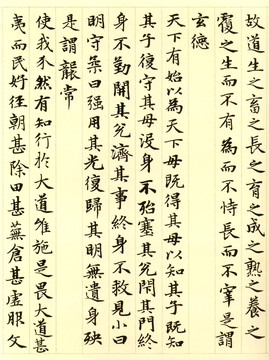 故道生之長之育之成之熟之養之
覆之生而不有為而不恃長而不宰是謂
玄德
天下有始以為天下母既得其母以知其子既知
其子復守其母没身不殆塞其兌閉其門終
身不勤開其兌濟其事終身不救見小曰
明守柔曰强用其光復歸其明無遺身殃
是謂襲常
使我介然有知行於大道唯施是畏大道甚
夷而民好徑朝甚除田甚蕪倉甚虛服文